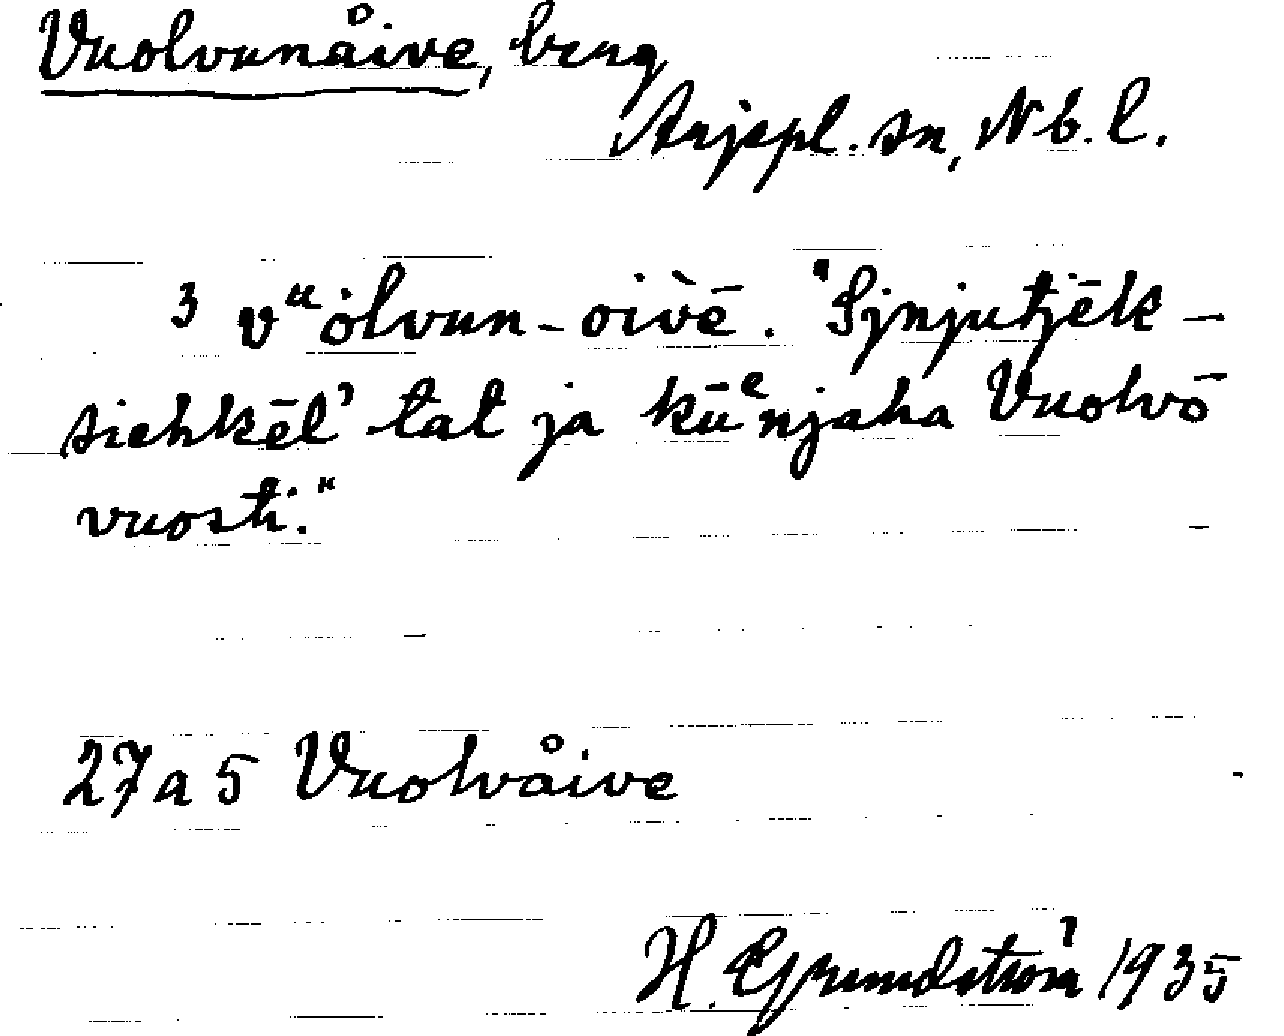 Vuolvunåive, berg
Arjepl. sn, Nb. l.
3 vᵘȯlvun-oivē. "Sjnjutjēk-
siehkēl' tat ja kūᵉnjaha Vuolvō
vuosti."
27 a 5 Vuolvåive
H. Grundström 1935